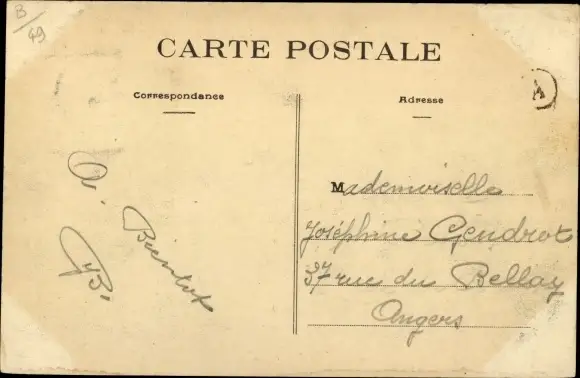 B/49
CARTE POSTALE
Correspondance
Adresse
A
A Bientot
Mademoiselle
Joséphine Gendrot
37 rue du Bellay
Angers